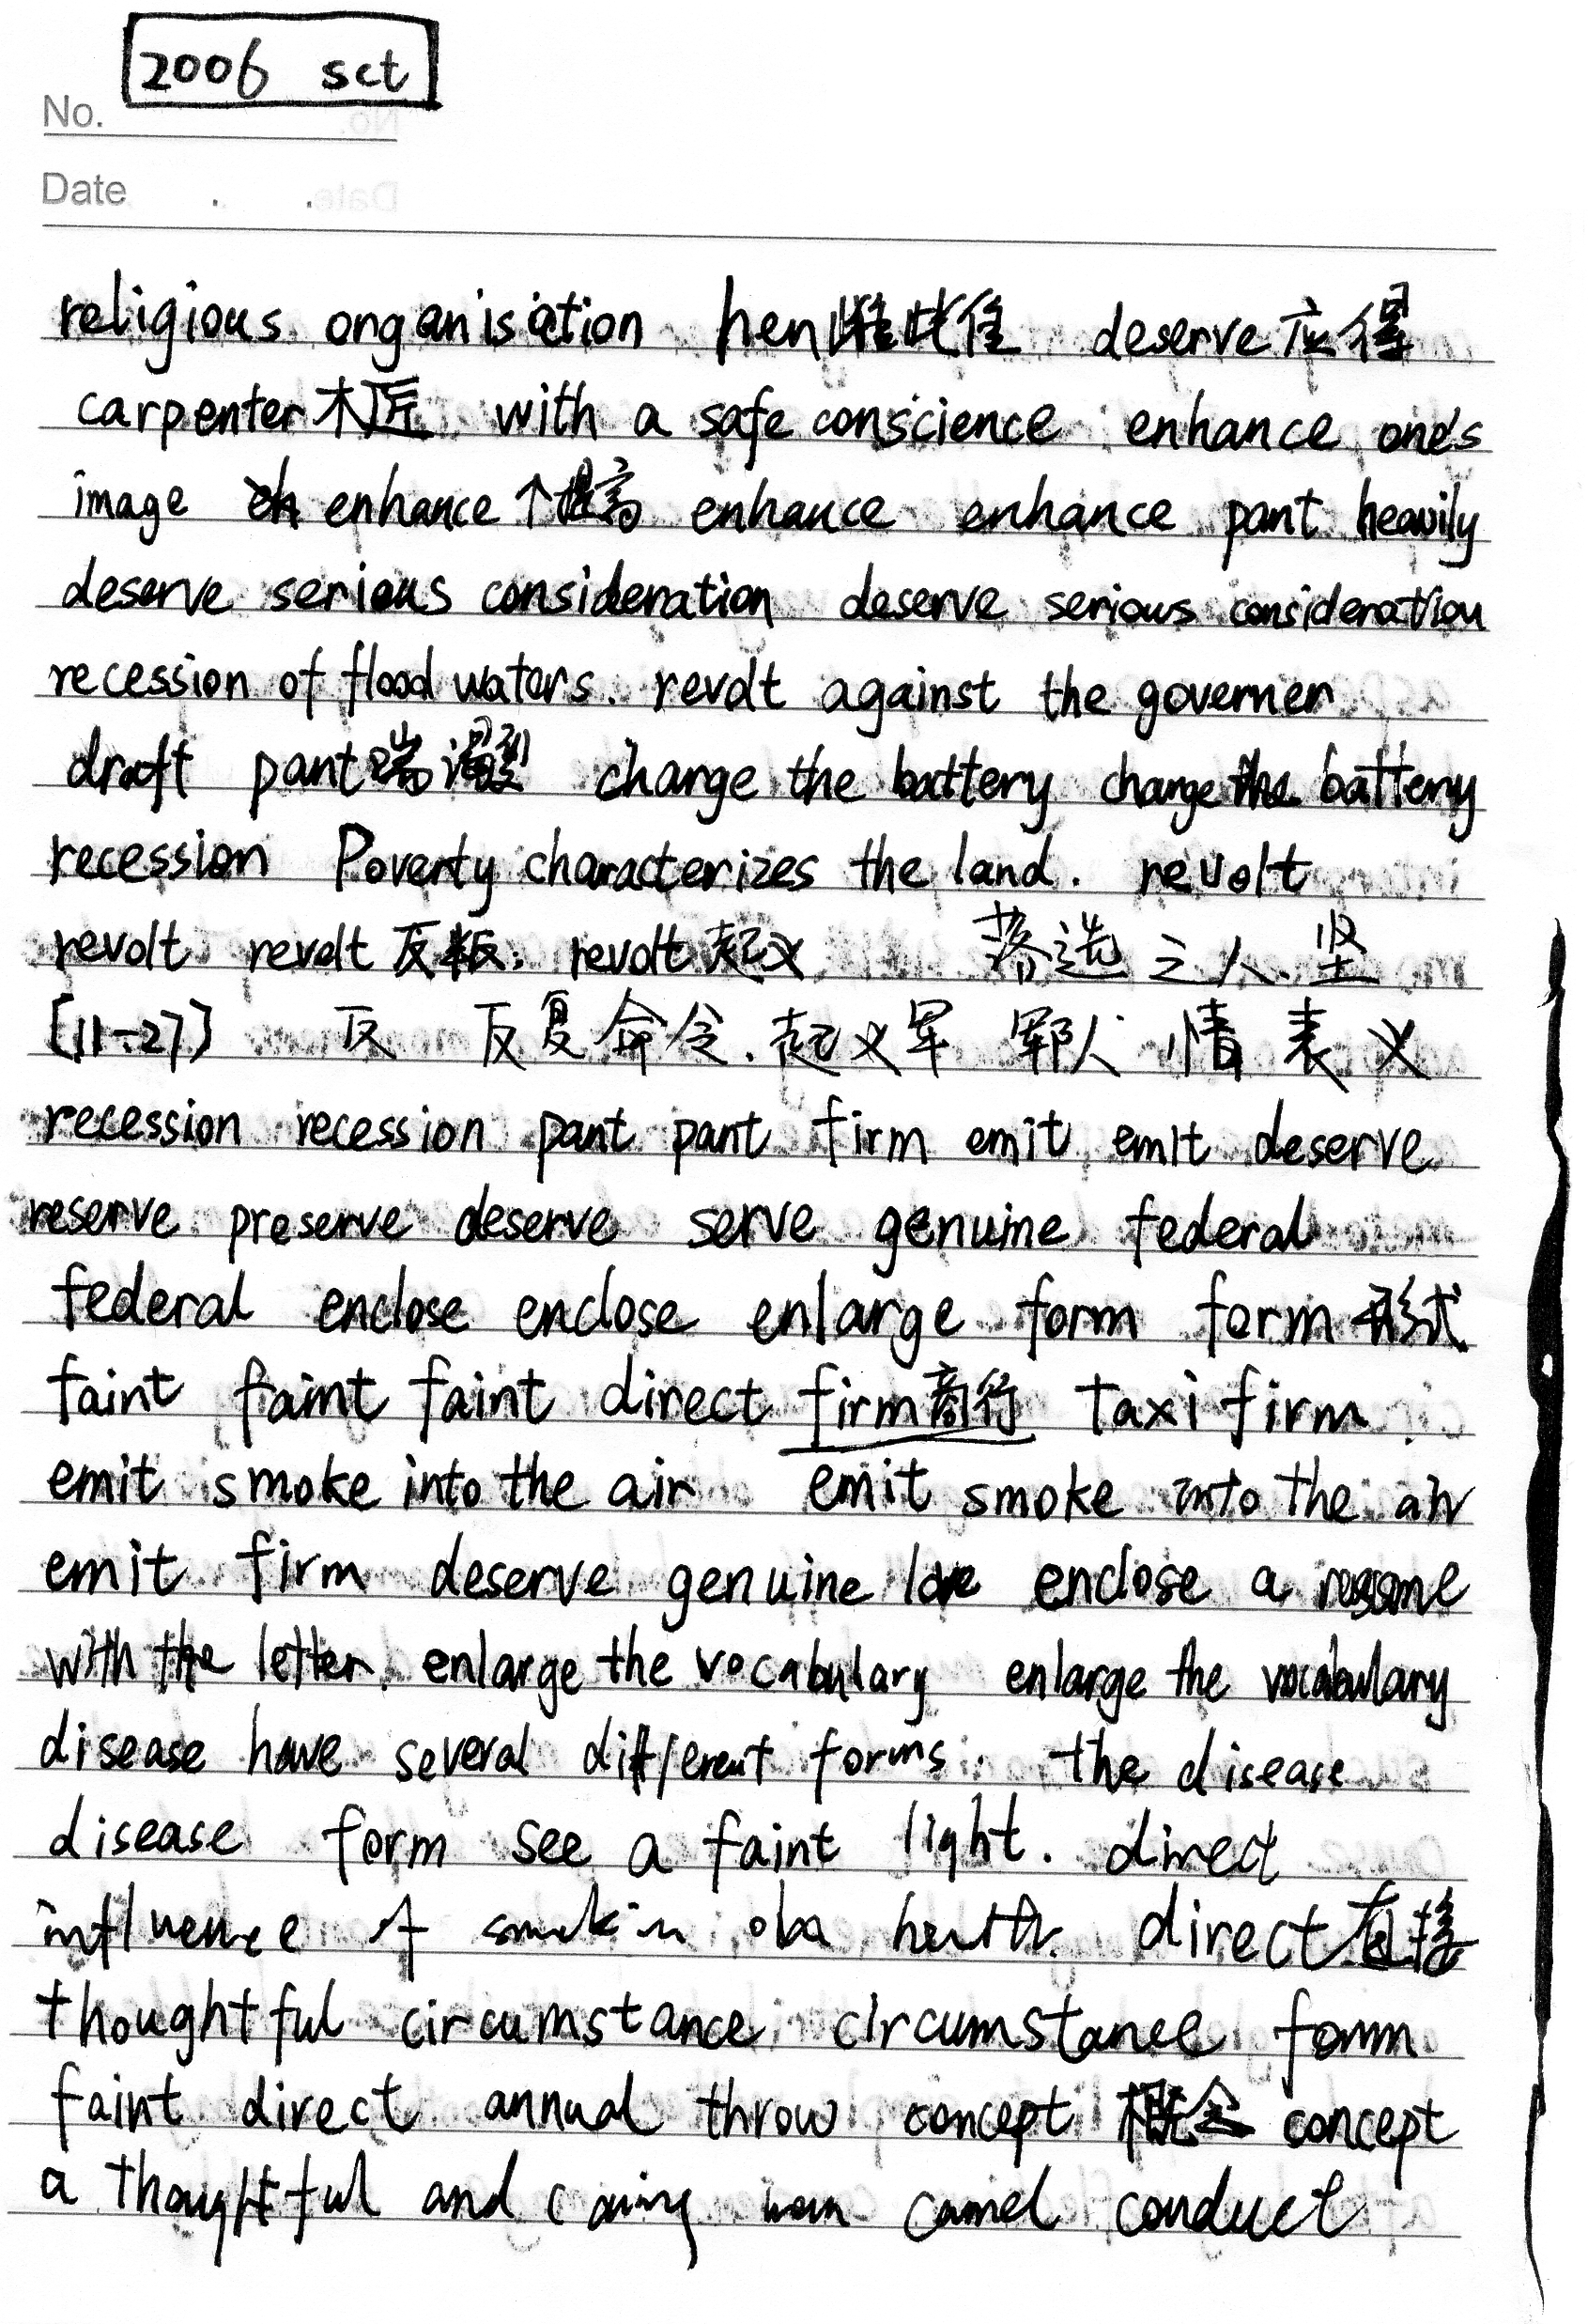 2006 set
No.
Date . .
religious organisation hen雌性 deserve应得
carpenter木匠 with a safe conscience enhance one's
image enhance↑提高 enhance enhance pant heavily
deserve serious consideration deserve serious consideration
recession of flood waters. revolt against the governer
draft pant喘 charge the battery charge the battery
recession Poverty characterizes the land. revolt
revolt revolt 反叛. revolt 起义 落选之人. 坚
[11-27] 反 反复命令. 起义军 军人 情 表 义
recession recession pant pant firm emit emit deserve
reserve preserve deserve serve genuine federal
federal enclose enclose enlarge form form 形式
faint faint faint direct firm商行 taxi firm
emit smoke into the air emit smoke into the air
emit firm deserve genuine love enclose a resume
with the letter. enlarge the vocabulary enlarge the vocabulary
disease have several different forms. the disease
disease form see a faint light. direct
influence of smokin health direct直接
thoughtful circumstance circumstance form
faint direct annual throw concept 概念 concept
a thoughtful and caring man camel conduct